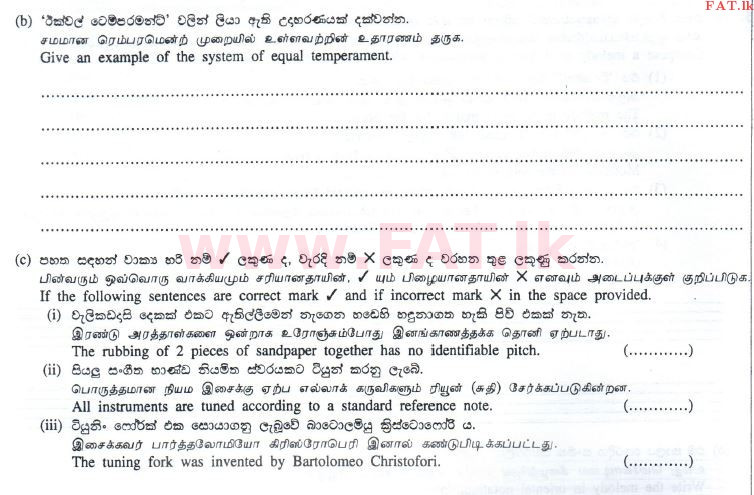 FAT.lk
(b) 'ඊක්වල් ටෙම්පරමන්ට්' වලින් ලියා ඇති උදාහරණයක් දක්වන්න.
சமமான ரெம்பரமென்ற் முறையில் உள்ளவற்றின் உதாரணம் தருக.
Give an example of the system of equal temperament.
(c) පහත සඳහන් වාක්‍ය හරි නම් ✓ ලකුණ ද, වැරදි නම් ✕ ලකුණ ද වරහන තුළ ලකුණු කරන්න.
பின்வரும் ஒவ்வொரு வாக்கியமும் சரியானதாயின், ✓ யும் பிழையானதாயின் ✕ எனவும் அடைப்புக்குள் குறிப்பிடுக.
If the following sentences are correct mark ✓ and if incorrect mark ✕ in the space provided.
(i) වැලිකඩදාසි දෙකක් එකට ඇතිල්ලීමෙන් නැගෙන හඬෙහි හඳුනාගත හැකි පිච් එකක් නැත.
இரண்டு அரத்தாள்களை ஒன்றாக உரோஞ்சும்போது இனங்காணத்தக்க தொனி ஏற்படாது.
The rubbing of 2 pieces of sandpaper together has no identifiable pitch. (............)
(ii) සියලු සංගීත භාණ්ඩ නියමිත ස්වරයකට ටියුන් කරනු ලැබේ.
பொருத்தமான நியம இசைக்கு ஏற்ப எல்லாக் கருவிகளும் ரியூன் (சுதி) சேர்க்கப்படுகின்றன.
All instruments are tuned according to a standard reference note. (............)
www.FAT.lk
(iii) ටියුනිං ෆෝර්ක් එක සොයාගනු ලැබුවේ බාටොලමියු ක්‍රිස්ටොෆෝරි ය.
இசைக்கவர் பார்த்தலோமியோ கிறிஸ்ரோபெரி இனால் கண்டுபிடிக்கப்பட்டது.
The tuning fork was invented by Bartolomeo Christofori. (............)